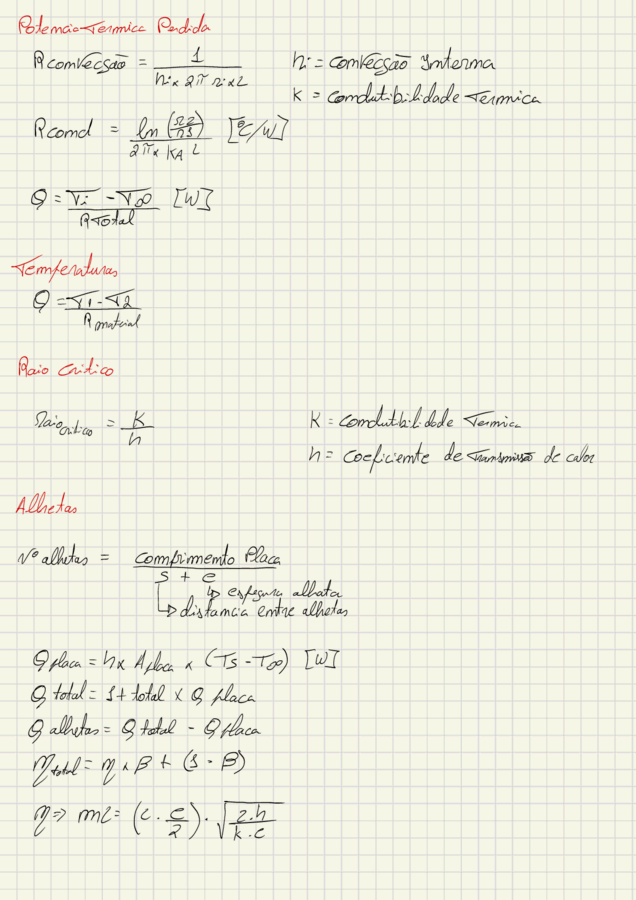 Potencia Termica Perdida
R convecsão = 1 / (hi x 2π ri x L)
hi = convecsão Interna
K = condutibilidade Termica
R cond = ln (r2/r1) / (2π x KA L) [°C/W]
Q = (Ti - T∞) / R Total [W]
Temperaturas
Q = (T1 - T2) / R material
Raio Critico
Raio critico = K / h
K = condutibilidade Termica
h = coeficiente de Transmissão de calor
Alhetas
Nº alhetas = comprimento Placa / (s + e)
↳ espesura alhata
↳ distancia entre alhetas
Q placa = h x A placa x (Ts - T∞) [W]
Q total = 1 + total x Q placa
Q alhetas = Q total - Q placa
η total = η x β + (1 - β)
η => mL = (L · e/2) · √(2·h / k·e)